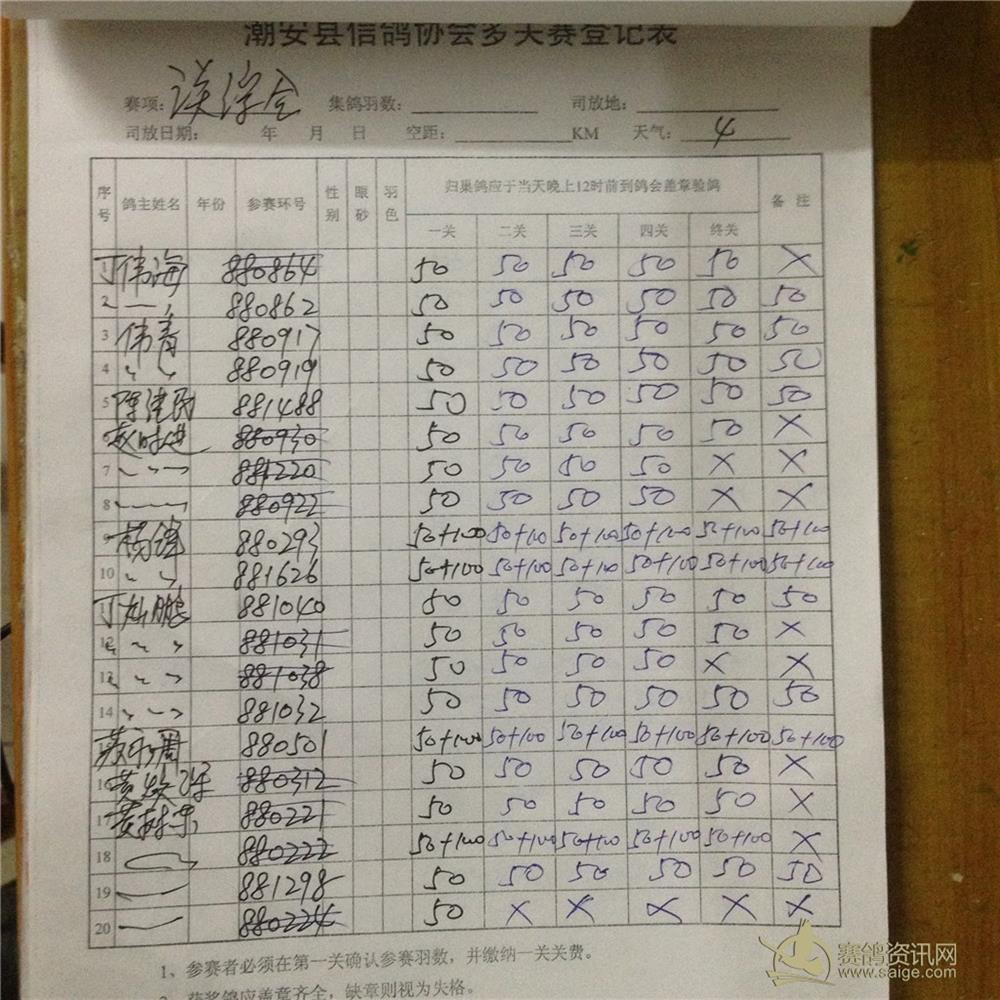 潮安县信鸽协会多关赛登记表
赛项: 集鸽羽数: 司放地:
司放日期: 年 月 日 空距: KM 天气: 4
序号 鸽主姓名 年份 参赛环号 性别 眼砂 羽色 归巢鸽应于当天晚上12时前到鸽会盖章验鸽 备 注
一关 二关 三关 四关 终关
丁伟海 880864 50 50 50 50 50 ×
2 880862 50 50 50 50 50 50
3 伟青 880917 50 50 50 50 50 50
4 〃 〃 880919 50 50 50 50 50 50
5 陈建民 881488 50 50 50 50 50 50
赵时进 880930 50 50 50 50 50 ×
7 881220 50 50 50 50 × ×
8 880922 50 50 50 50 × ×
9 杨锋 880293 50+100 50+100 50+100 50+100 50+100 50+100
10 〃 〃 881626 50+100 50+100 50+100 50+100 50+100 50+100
丁灿鹏 881040 50 50 50 50 50 50
12 881031 50 50 50 50 50 ×
13 881038 50 50 50 50 × ×
14 881032 50 50 50 50 50 50
880501 50+100 50+100 50+100 50+100 50+100 50+100
16 880312 50 50 50 50 50 ×
17 880221 50 50 50 50 50 ×
18 880222 50+100 50+100 50+100 50+100 50+100 ×
19 881298 50 50 50 50 50 50
20 880224 50 × × × × ×
1、参赛者必须在第一关确认参赛羽数，并缴纳一关关费。
2、获奖鸽应盖章齐全，缺章则视为失格。
赛鸽资讯网
www.saige.com